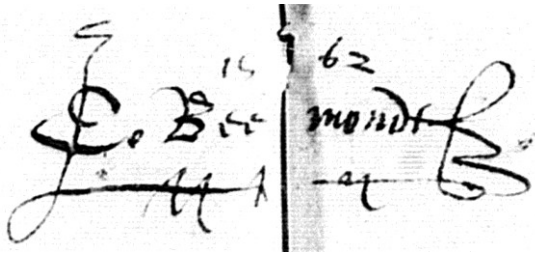 15 62
E. Bee mondt